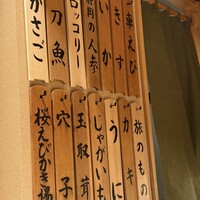 車えび
きす
いか
静岡の人参
ブロッコリー
太刀魚
かさご
旅のもの
カキ
うに
じゃがいも
玉取茸
穴子
桜えびかき揚